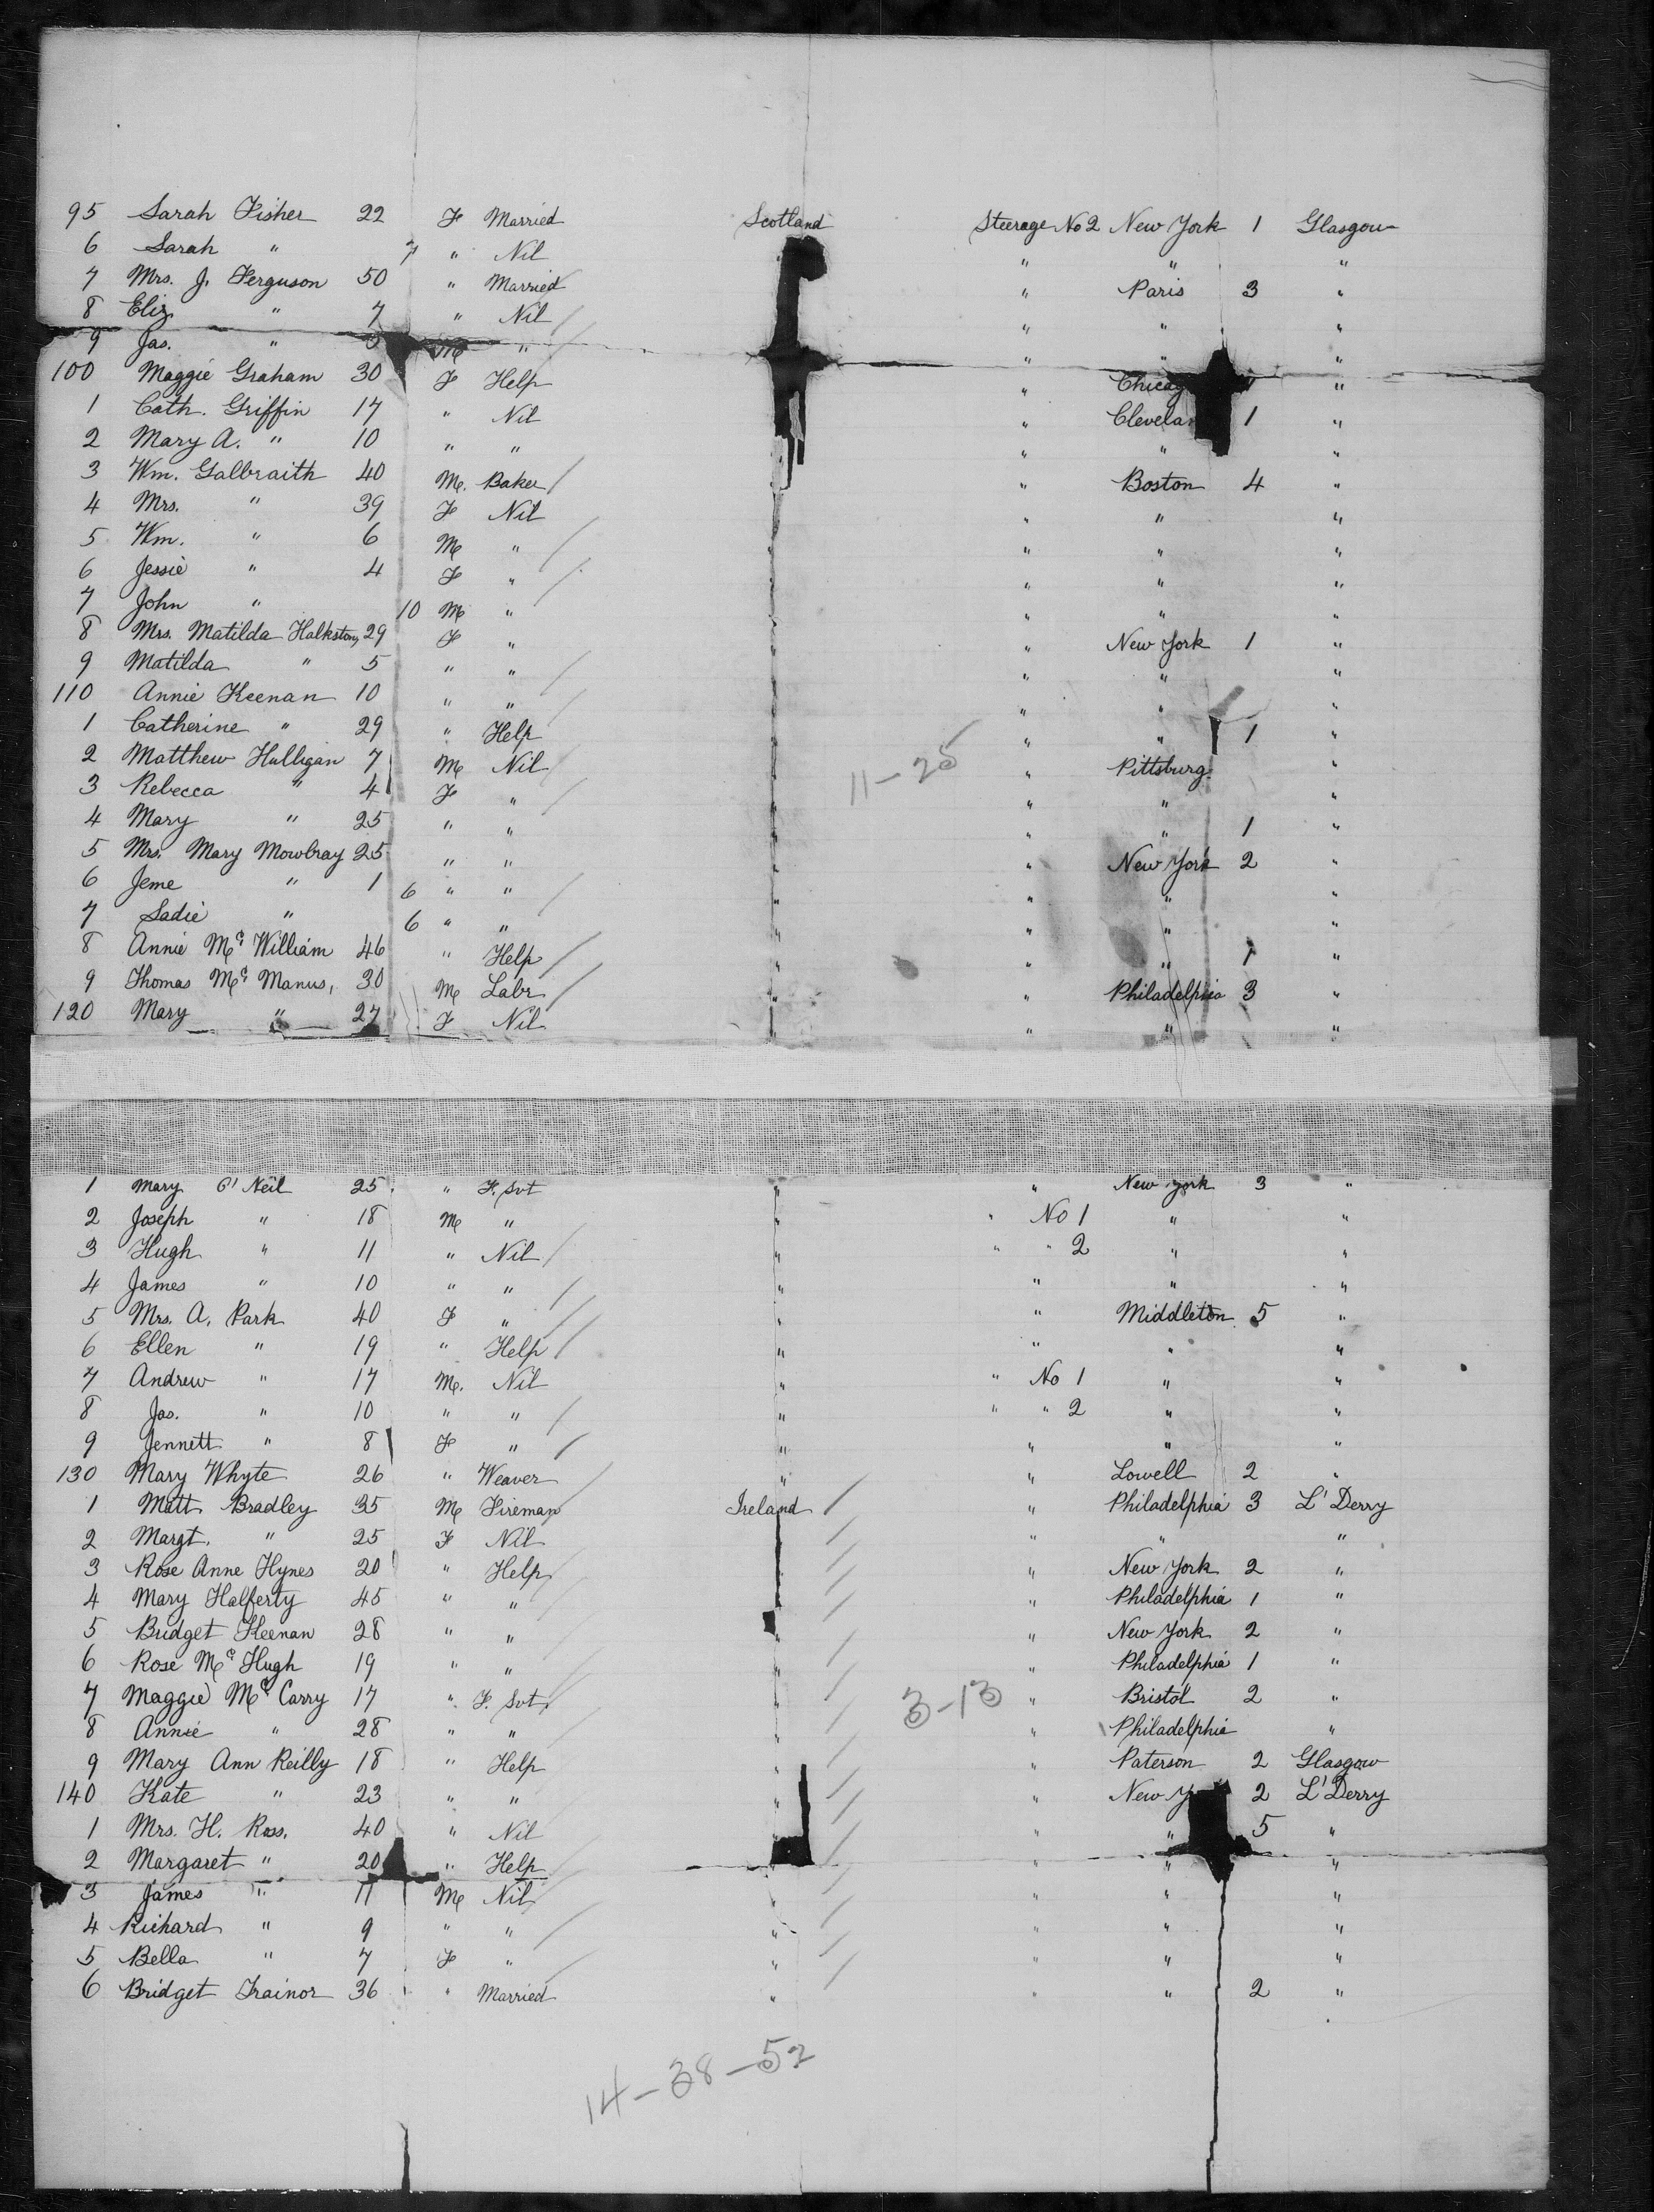 95 Sarah Fisher 22 F Married Scotland Steerage No 2 New York 1 Glasgow
6 Sarah " 7 " Nil " " "
7 Mrs. J. Ferguson 50 " Married " Paris 3 "
8 Eliz " 7 " Nil " " "
9 Jas. " 5 M " " " "
100 Maggie Graham 30 F Help " "
1 Cath. Griffin 17 " Nil " 1 "
2 Mary A. " 10 " " " " " "
3 Wm. Galbraith 40 M. Baker " " Boston 4 "
4 Mrs. " 39 F Nil " " " "
5 Wm. " 6 M " " " " "
6 Jessie " 4 F " " " " "
7 John " 10 M " " " " "
8 Mrs. Matilda Halkston, 29 F " " " New York 1 "
9 Matilda " 5 " " " " " "
110 Annie Keenan 10 " " " " " "
1 Catherine " 29 " Help " " " 1 "
2 Matthew Hulligan 7 M Nil " " Pittsburg. "
3 Rebecca " 4 F " " " " "
4 Mary " 25 " " " " " 1 "
5 Mrs. Mary Mowbray 25 " " " " New York 2 "
6 Jeme " 1 6 " " " " " "
7 Sadie " 6 " " " " " "
8 Annie Mc William 46 " Help " " " 1 "
9 Thomas Mc Manus, 30 M Labr " " Philadelphia 3 "
120 Mary " 27 F Nil " " " "
11-25
1 Mary O'Neil 25 " F. Svt " " New York 3 "
2 Joseph " 18 M " " " No 1 " "
3 Hugh " 11 " Nil " " " 2 " "
4 James " 10 " " " " " "
5 Mrs. A. Park 40 F " " " Middleton 5 "
6 Ellen " 19 " Help " " " "
7 Andrew " 17 M. Nil " " No 1 " "
8 Jas. " 10 " " " " " 2 " "
9 Jennett " 8 F " " " " "
130 Mary Whyte 26 " Weaver " " Lowell 2 "
1 Matt Bradley 35 M Fireman Ireland " Philadelphia 3 L'Derry
2 Margt. " 25 F Nil " " "
3 Rose Anne Hynes 20 " Help " New York 2 "
4 Mary Halferty 45 " " " Philadelphia 1 "
5 Bridget Keenan 28 " " " " New York 2 "
6 Rose Mc Hugh 19 " " " " Philadelphia 1 "
7 Maggie Mc Carry 17 " F. Svt " " Bristol 2 "
8 Annie " 28 " " " " Philadelphia "
9 Mary Ann Reilly 18 " Help " " Paterson 2 Glasgow
140 Kate " 23 " " " " New 2 L'Derry
1 Mrs. H. Ross. 40 " Nil " " " 5 "
2 Margaret " 20 " Help " " "
3 James " 11 M Nil " " " "
4 Richard " 9 " " " " " "
5 Bella " 7 F " " " " "
6 Bridget Trainor 36 " Married " " " 2 "
3-13
14-38-52